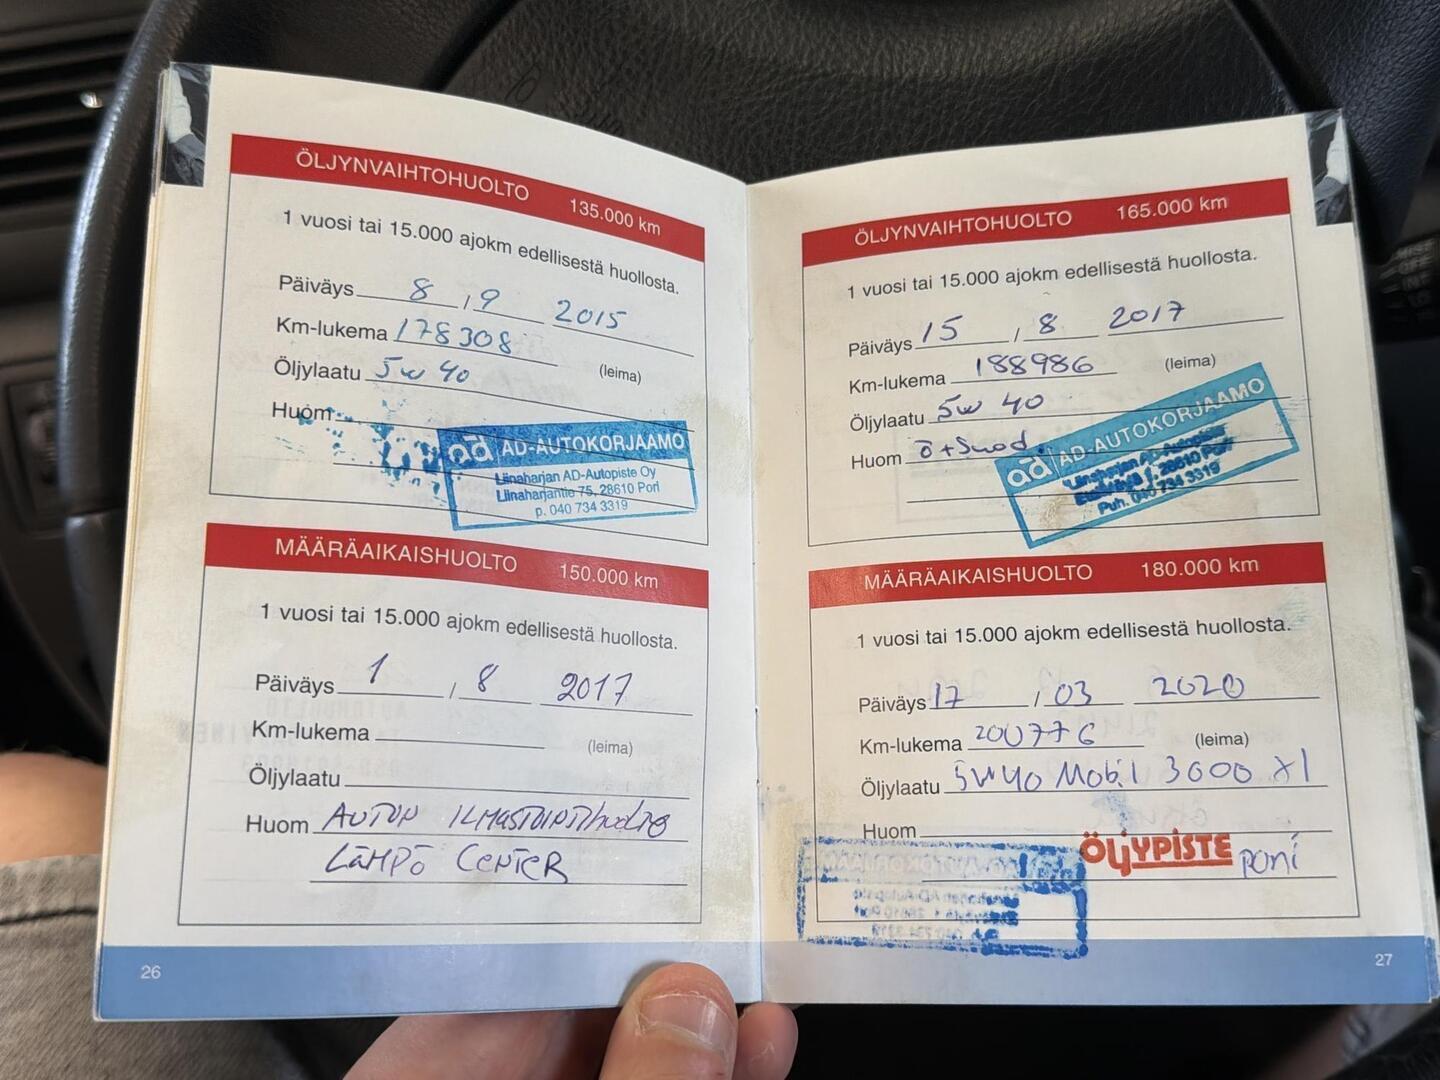 ÖLJYNVAIHTOHUOLTO 135.000 km
1 vuosi tai 15.000 ajokm edellisestä huollosta.
Päiväys 8 / 9 2015
Km-lukema 178308
Öljylaatu 5w 40 (leima)
Huom
ad AD-AUTOKORJAAMO
Liinaharjan AD-Autopiste Oy
Liinaharjantie 75, 28610 Pori
p. 040 734 3319
MÄÄRÄAIKAISHUOLTO 150.000 km
1 vuosi tai 15.000 ajokm edellisestä huollosta.
Päiväys 1 / 8 2017
Km-lukema (leima)
Öljylaatu
Huom AUTON ILMASTOINTIhuolto
LÄMPÖ CENTER
26
ÖLJYNVAIHTOHUOLTO 165.000 km
1 vuosi tai 15.000 ajokm edellisestä huollosta.
Päiväys 15 / 8 2017
Km-lukema 188986 (leima)
Öljylaatu 5w 40
Huom ö+Suod.
ad AD-AUTOKORJAAMO
Liinaharjan AD-Autopiste
28610 Pori
Puh. 040 734 3319
MÄÄRÄAIKAISHUOLTO 180.000 km
1 vuosi tai 15.000 ajokm edellisestä huollosta.
Päiväys 17 / 03 2020
Km-lukema 200776 (leima)
Öljylaatu 5W40 Mobil 3000 X1
Huom
ÖLJYPISTE PORI
27